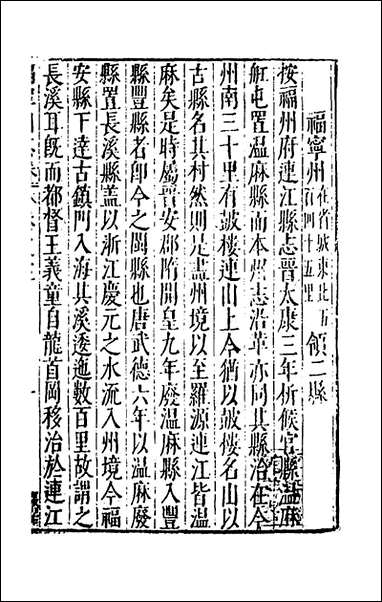 福寧州在省城東北五百四十五里領二縣
按福州府連江縣志晉太康三年析候官縣溫麻
舡屯置溫麻縣而本州志沿革亦同其縣治在今
州南三十里有鼓樓連山上今猶以鼓樓名山以
古縣名其村然則是盡州境以至羅源連江皆溫
麻矣是時屬晉安郡隋開皇九年廢溫麻縣入豐
縣豐縣者即今之閩縣也唐武德六年以溫麻廢
縣置長溪縣蓋以浙江慶元之水流入州境今福
安縣下達古鎮門入海其溪逶迤數百里故謂之
長溪耳既而都督王義童自龍首岡移治於連江